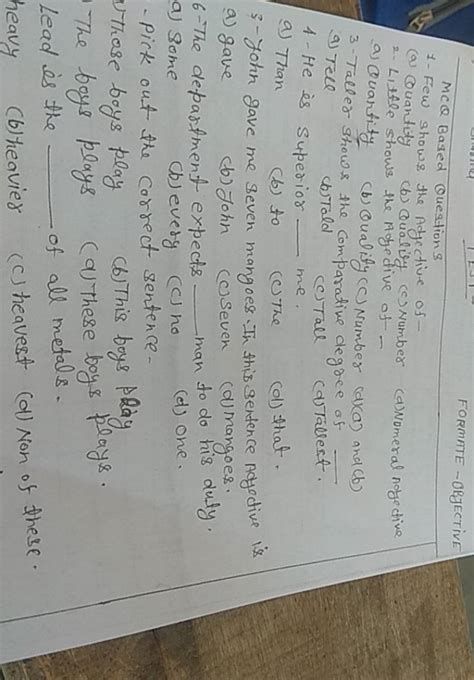 FORMATE - OBJECTIVE
MCQ Based Questions
1. Few shows the Adjective of -
(a) Quantity (b) Quality (c) Number (d) Numeral Adjective
2. Little shows the Adjective of -
a) Quantity (b) Quality (c) Number (d) (a) and (b)
3- Taller shows the Comparative degree of ___
(a) Tell (b) Told (c) Tall (d) Tallest.
4- He is Superior ___ me.
a) Than (b) to (c) The (d) that.
5- John gave me seven mangoes. In this sentence Adjective is
a) gave (b) John (c) seven (d) mangoes.
6- The department expects ___ man to do his duty.
a) Some (b) every (c) no (d) one.
- Pick out the correct sentence-
Those boys play (b) This boys play
The boys plays (d) These boys plays.
Lead is the ___ of all metals.
heavy (b) heavier (c) heavest (d) Non of these.